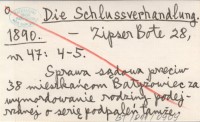 Die Schlussverhandlung.
1890. – Zipser Bote 28,
nr 47: 4-5.
Sprawa sądowa przeciw
38 mieszkańcom Batyzowiec za
wymordowanie rodziny podej-
rzanej o serię podpaleń tamże.